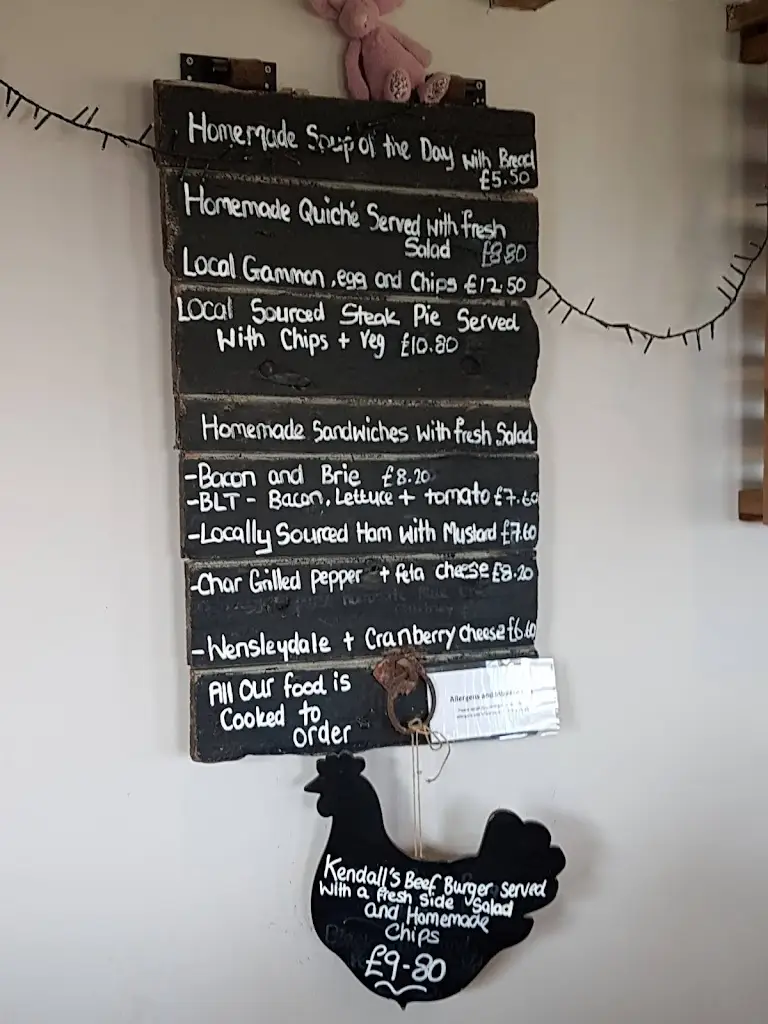 Homemade Soup of the Day with Bread
£5.50
Homemade Quiché Served with fresh
Salad £8.80
Local Gammon, egg and Chips £12.50
Local Sourced Steak Pie Served
With Chips + Veg £10.80
Homemade Sandwiches with fresh Salad
-Bacon and Brie £8.20
-BLT - Bacon, Lettuce + tomato £7.60
-Locally Sourced Ham with Mustard £7.60
-Char Grilled pepper + feta cheese £8.20
-Wensleydale + Cranberry cheese £6.60
All our food is
Cooked to
order
Allergens and
Kendall's Beef Burger served
with a fresh side Salad
and Homemade
Chips
£9-80